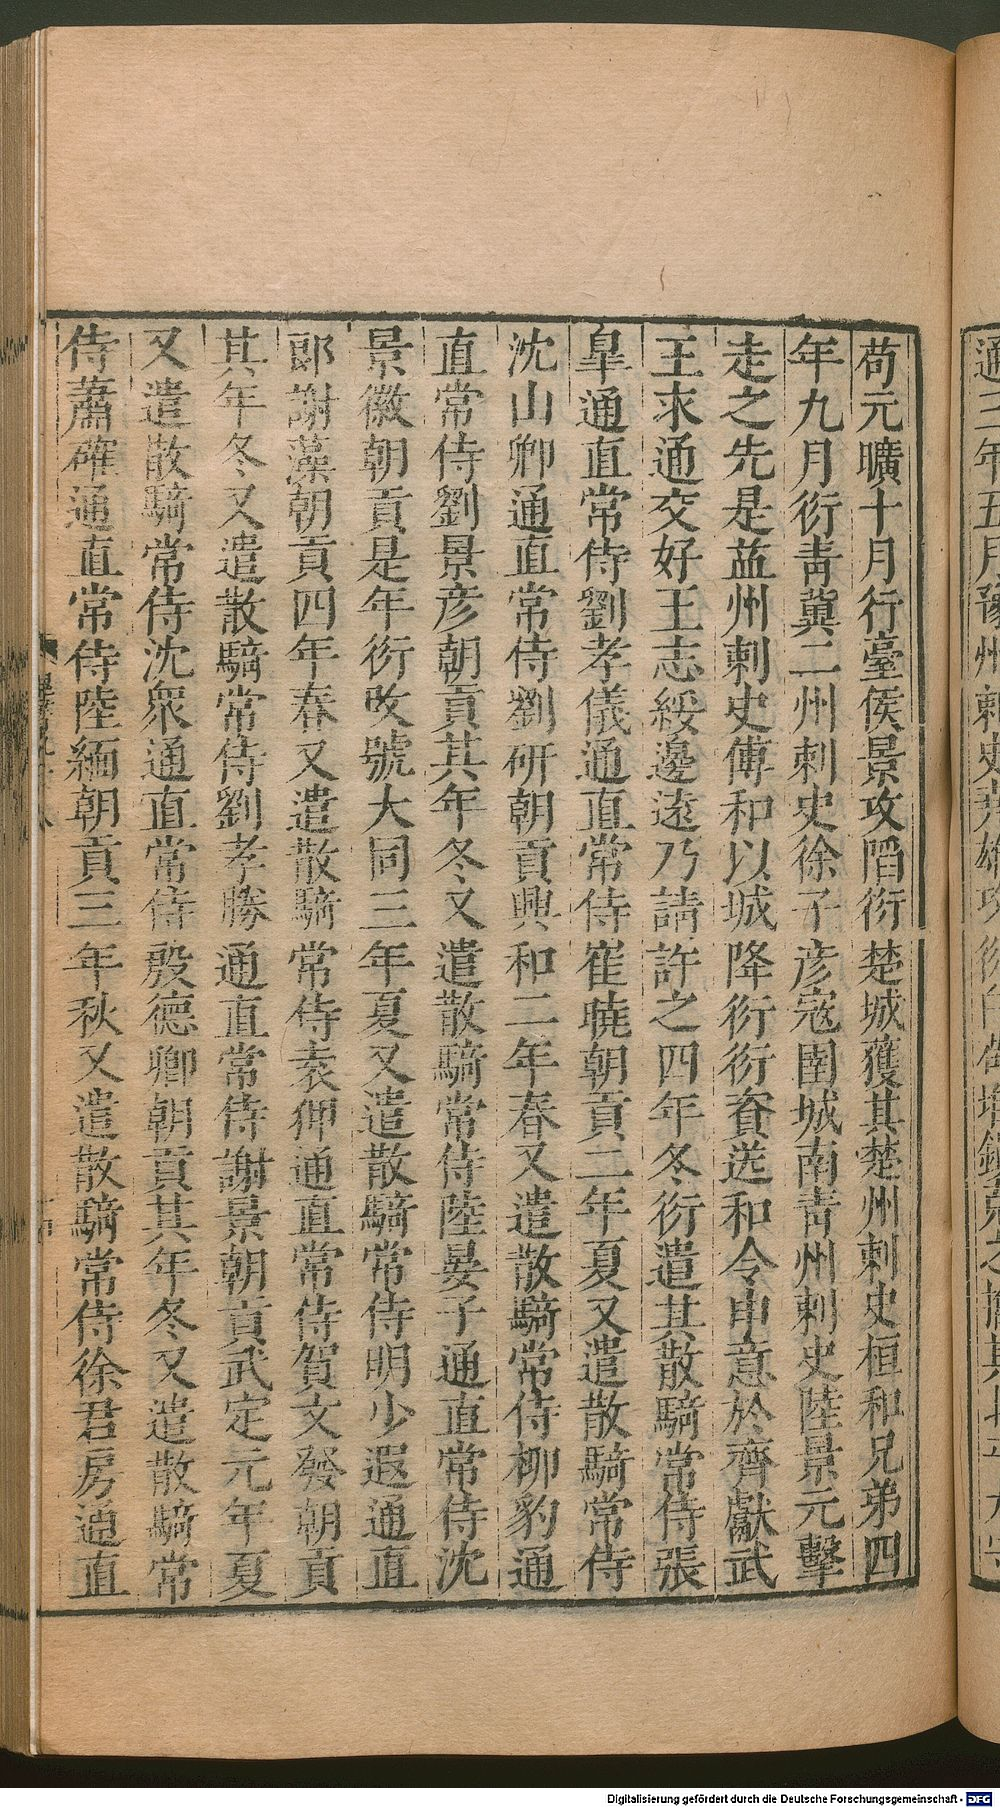 荀元曠十月行臺侯景攻陷衍楚城獲其楚州刺史桓和兄弟四
年九月衍靑冀二州刺史徐子彦寇圉城南靑州刺史陸景元擊
走之先是益州刺史傅和以城降衍衍資送和令申意於齊獻武
王求通交好王志綏邊遠乃請許之四年冬衍遣其散騎常侍張
臯通直常侍劉孝儀通直常侍崔曉朝貢二年夏又遣散騎常侍
沈山卿通直常侍劉硏朝貢興和二年春又遣散騎常侍柳豹通
直常侍劉景彦朝貢其年冬又遣散騎常侍陸晏子通直常侍沈
景徽朝貢是年衍改號大同三年夏又遣散騎常侍明少遐通直
郎謝藻朝貢四年春又遣散騎常侍袁仰通直常侍賀文發朝貢
其年冬又遣散騎常侍劉孝勝通直常侍謝景朝貢武定元年夏
又遣散騎常侍沈衆通直常侍殷德卿朝貢其年冬又遣散騎常
侍蕭確通直常侍陸緬朝貢三年秋又遣散騎常侍徐君房通直
Digitalisierung gefördert durch die Deutsche Forschungsgemeinschaft - DFG